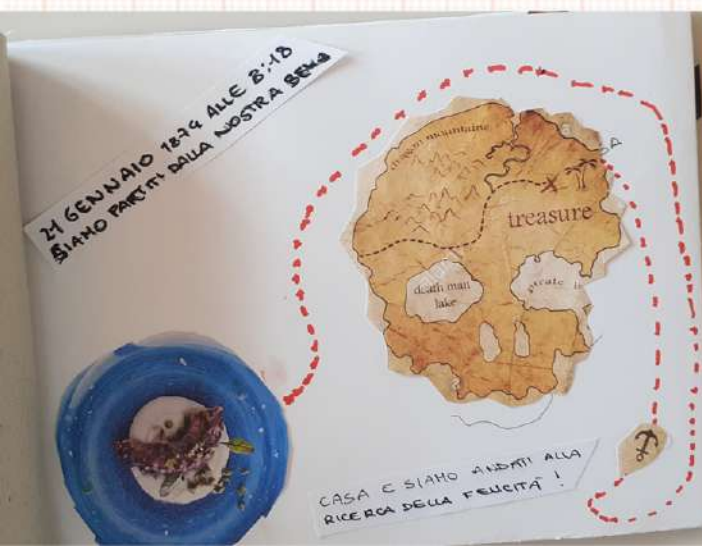 21 GENNAIO 1874 ALLE 8:18
SIAMO PARTITI DALLA NOSTRA
dragon mountaine
treasure
death man
lake
pirate
CASA E SIAMO ANDATI ALLA
RICERCA DELLA FELICITÀ !